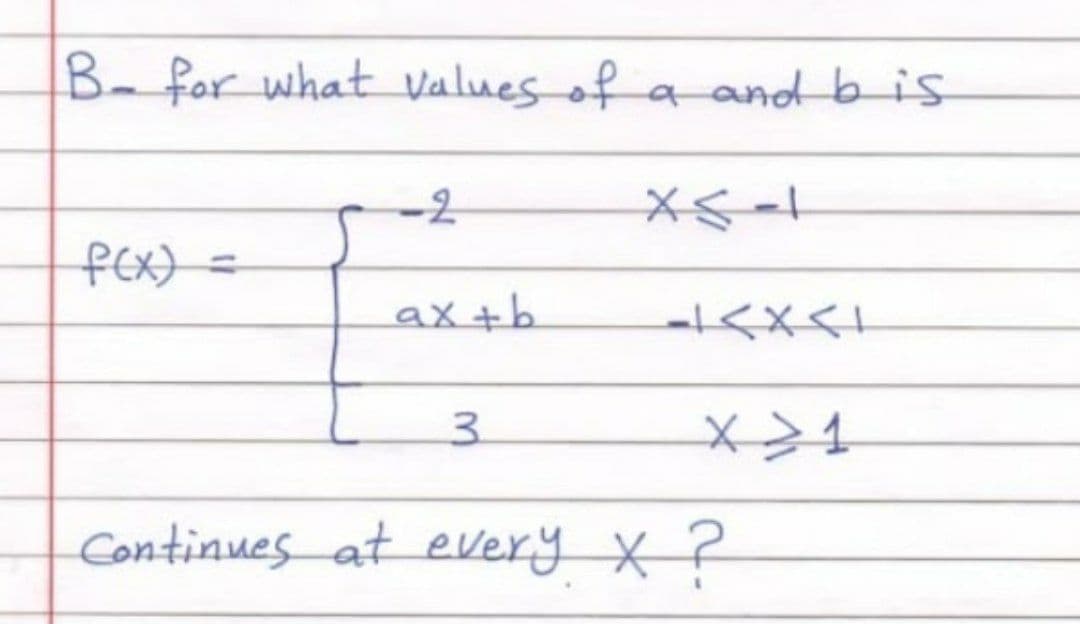 B- for what values of a and b is
-2 x ⩽ -1
f(x) =
ax + b -1 < x < 1
3 x ⩾ 1
Continues at every x ?